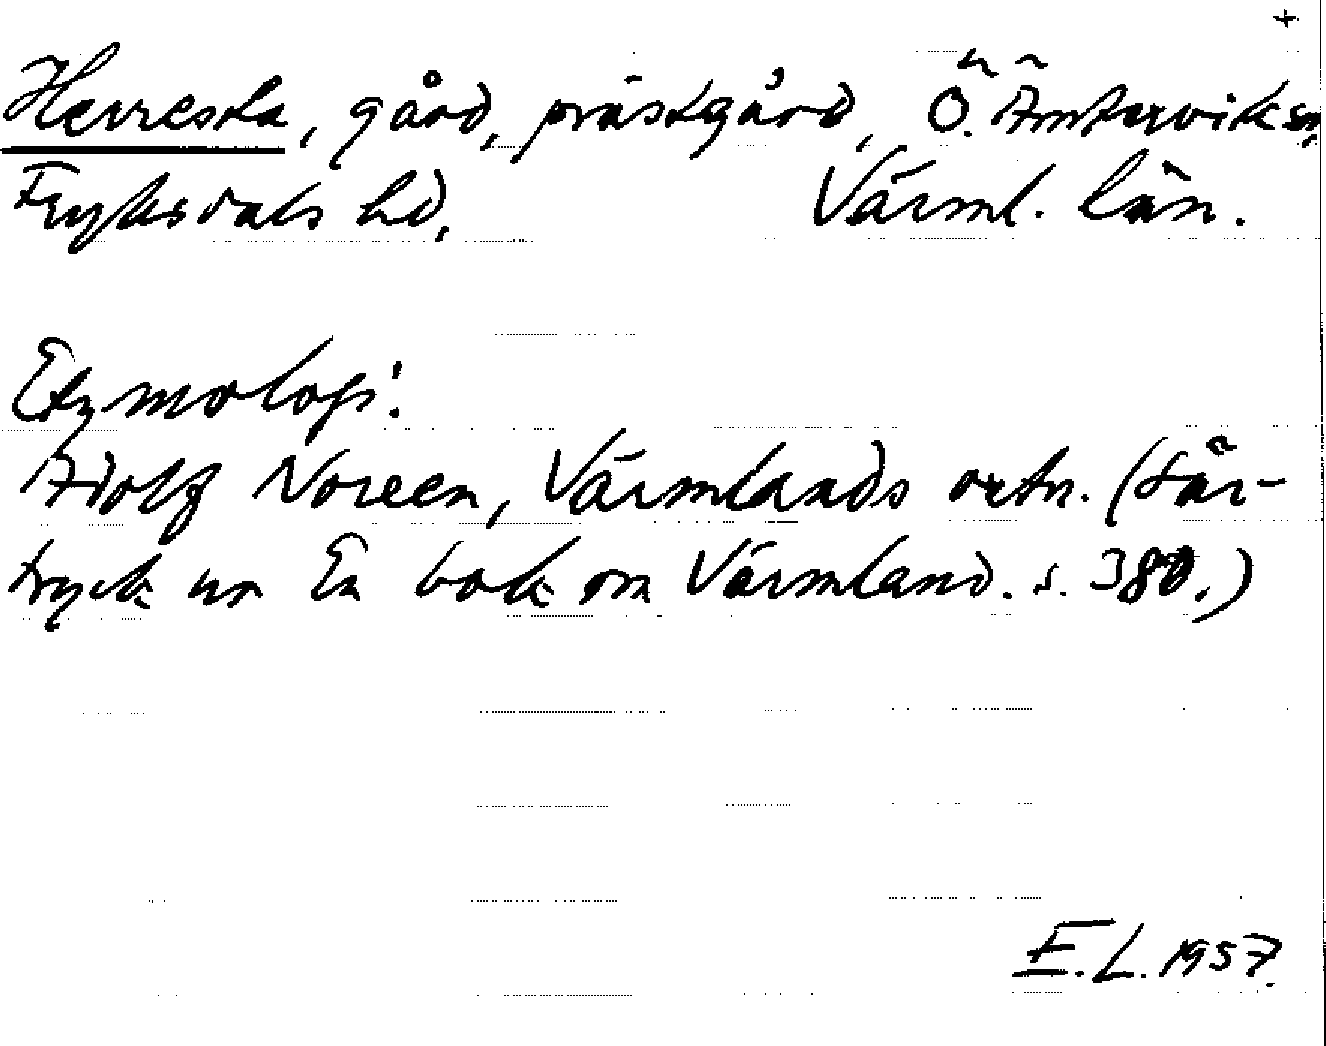 +
Herresta, gård, prästgård, Ö. Ämtervik sn,
Fryksdals hd, Värml. län.
Etymologi:
Adolf Noreen, Värmlands ortn. (Sär-
tryck ur En bok om Värmland. s. 380.)
E.L. 1957.